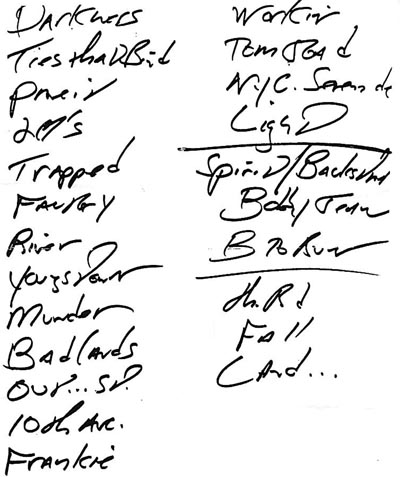 Darkness
Ties that Bind
Prove it
2 ♥'s
Trapped
Factory
River
Youngstown
Murder
Badlands
Out... St.
10th Ave.
Frankie
Workin
Tom Joad
N.Y.C. Serenade
Light D
Spirit/Backstr
Bobby Jean
B to Run
th. Rd
Fall
Land...